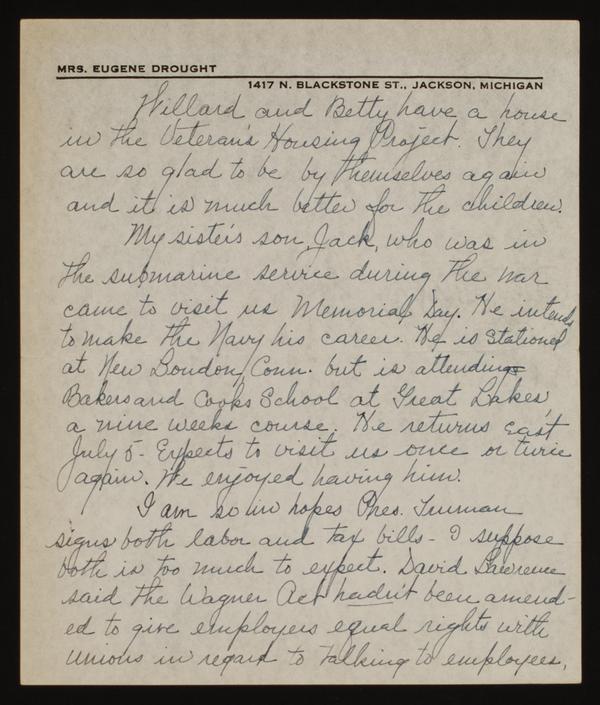 MRS. EUGENE DROUGHT
1417 N. BLACKSTONE ST., JACKSON, MICHIGAN
Willard and Betty have a house
in the Veteran's Housing Project. They
are so glad to be by themselves again
and it is much better for the children.
My sister's son, Jack, who was in
the submarine service during the war
came to visit us Memorial Day. He intends
to make the Navy his career. He is stationed
at New London, Conn. but is attending
Bakers and Cooks School at Great Lakes,
a nine weeks course. He returns East
July 5 - Expects to visit us once or twice
again. We enjoyed having him.
I am so in hopes Pres. Truman
signs both labor and tax bills - I suppose
both is too much to expect. David Lawrence
said the Wagner Act hadn't been amend-
ed to give employers equal rights with
unions in regard to talking to employees,